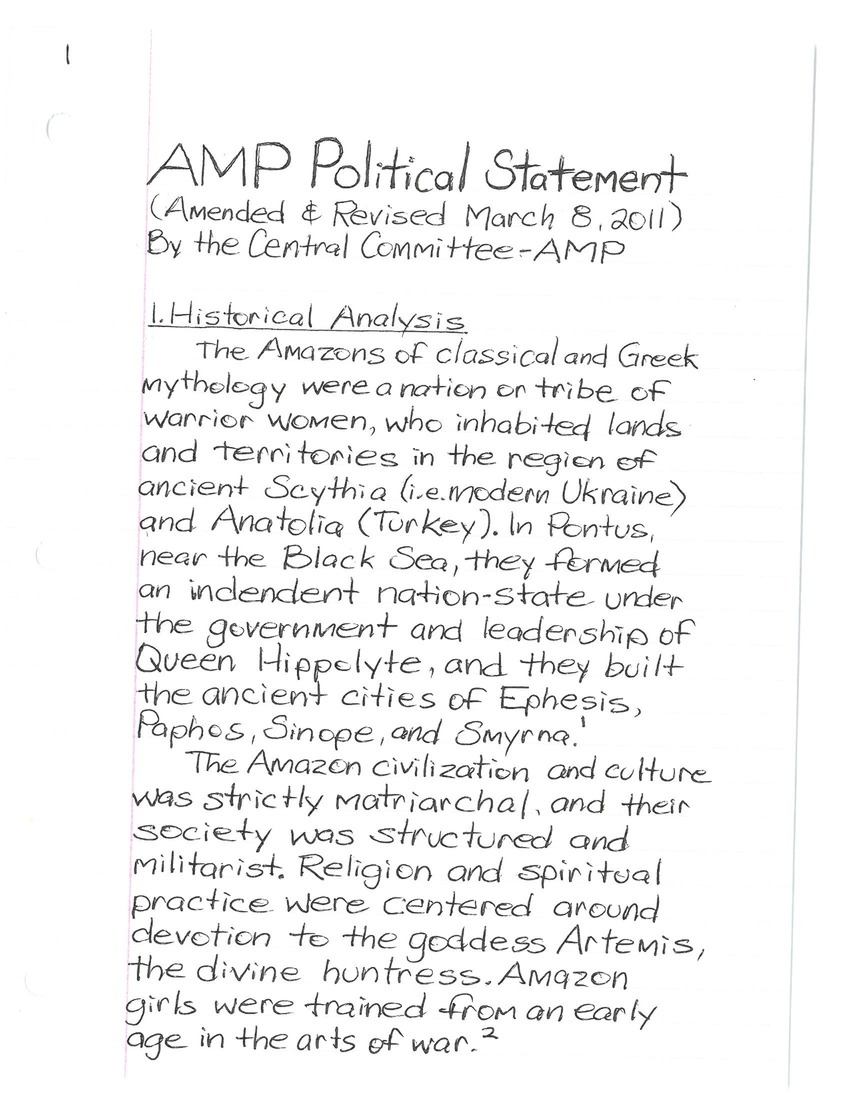 1
AMP Political Statement
(Amended & Revised March 8, 2011)
By the Central Committee-AMP
1. Historical Analysis
The Amazons of classical and Greek
mythology were a nation or tribe of
warrior women, who inhabited lands
and territories in the region of
ancient Scythia (i.e. modern Ukraine)
and Anatolia (Turkey). In Pontus,
near the Black Sea, they formed
an indendent nation-state under
the government and leadership of
Queen Hippolyte, and they built
the ancient cities of Ephesis,
Paphos, Sinope, and Smyrna.¹
The Amazon civilization and culture
was strictly matriarchal, and their
society was structured and
militarist. Religion and spiritual
practice were centered around
devotion to the goddess Artemis,
the divine huntress. Amazon
girls were trained from an early
age in the arts of war.²